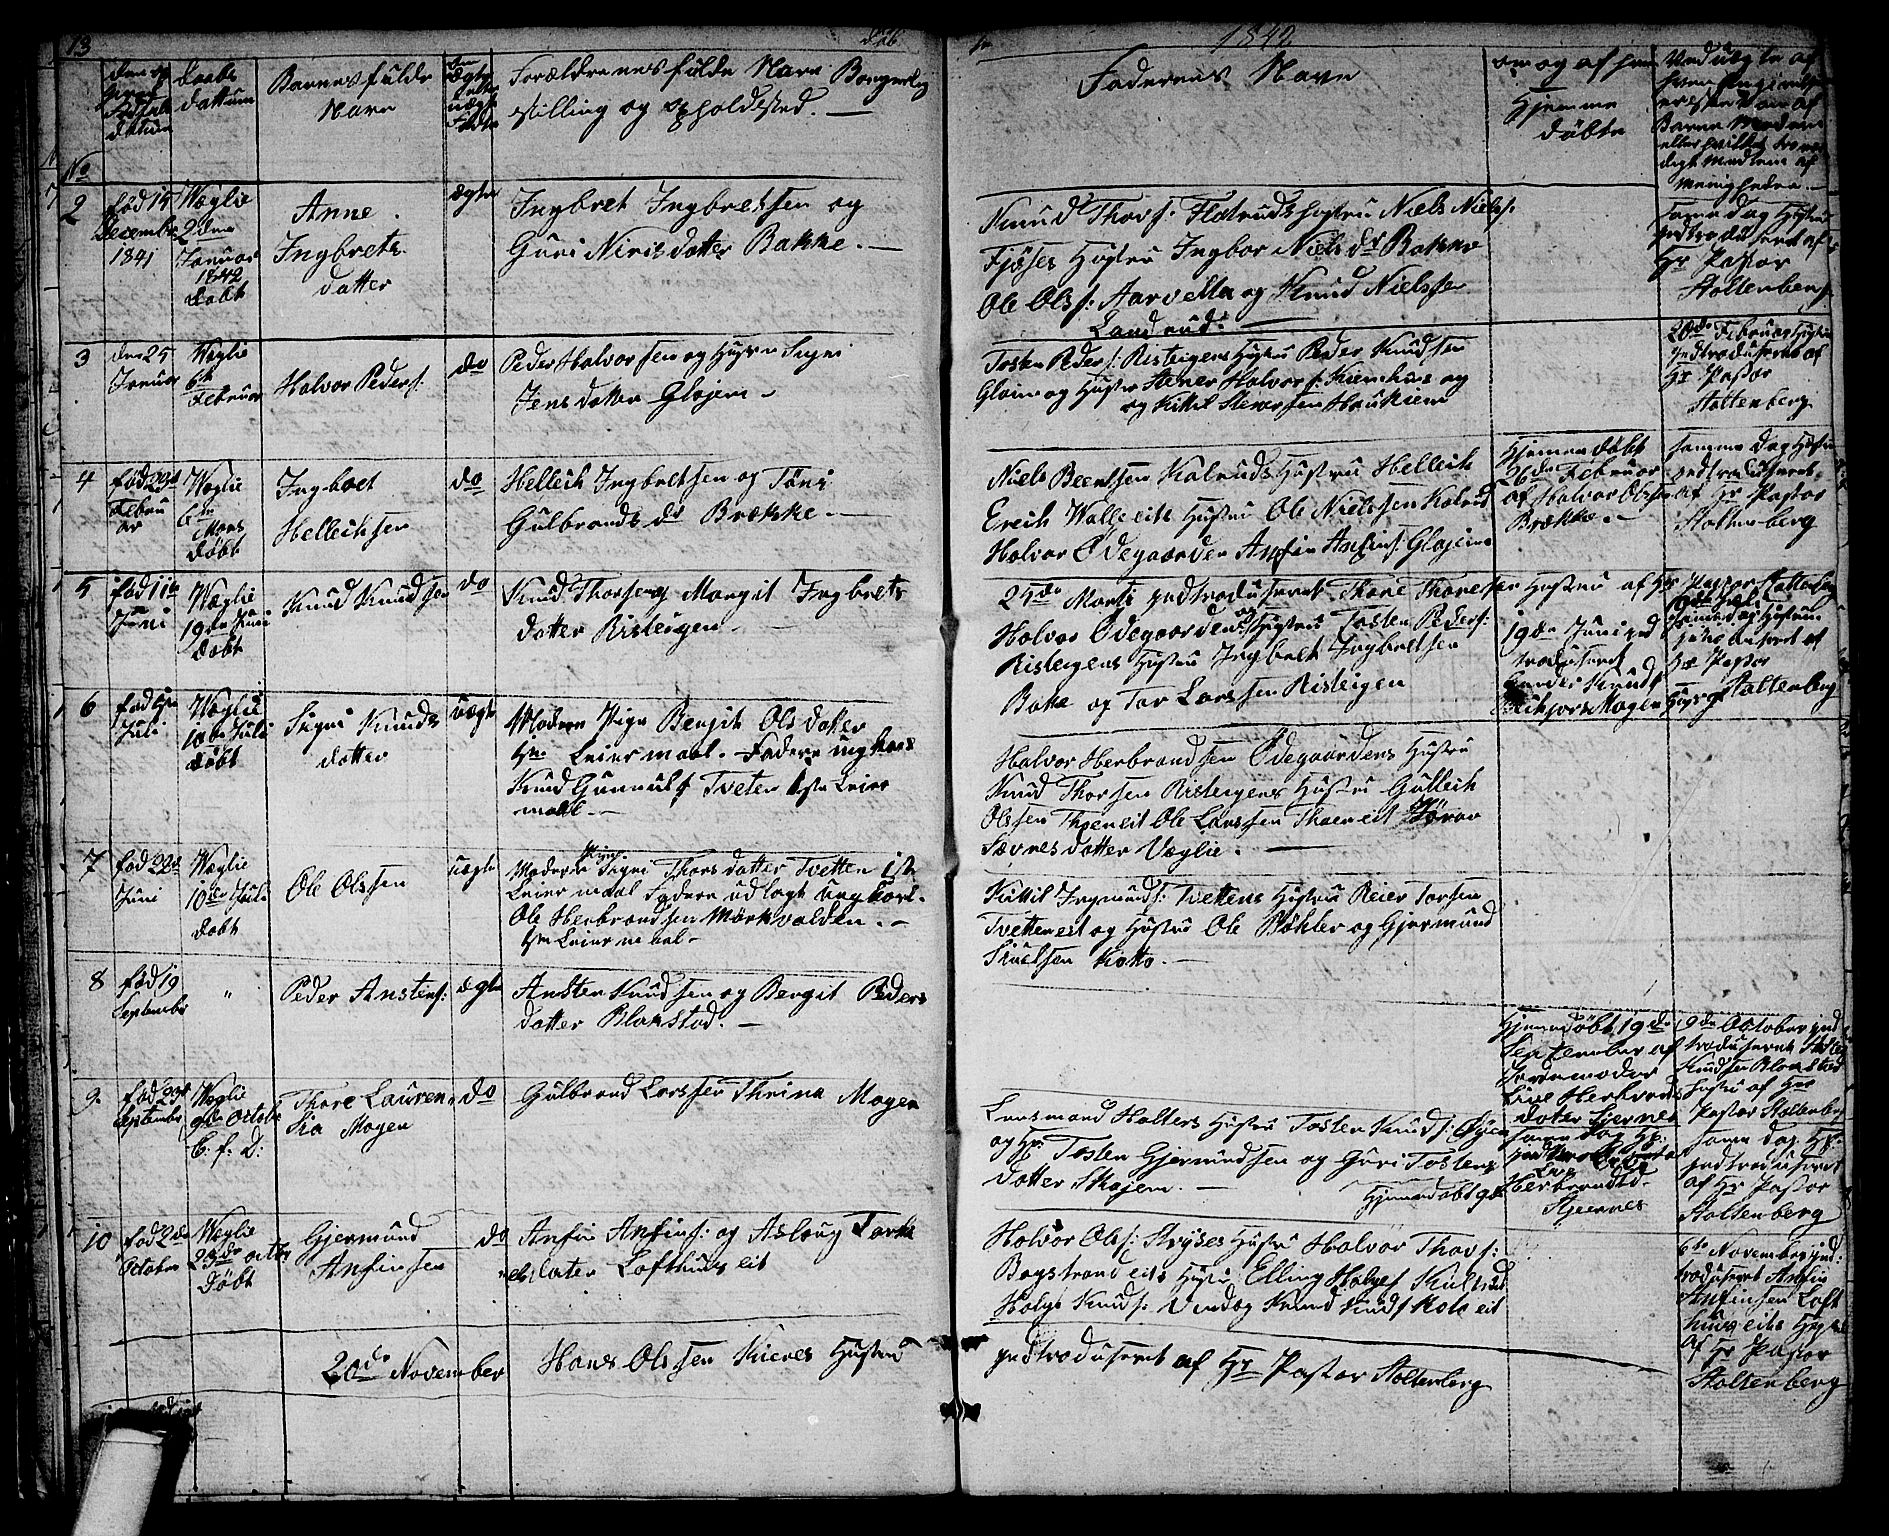 13
Døb
1842
No
Daabs
dattum
Barnes fulde
Navn
Forældrenes fulde Navn Borgerlig
stilling og opholdssted. —
Faddernes Navn
om og af hvem
Hjemme
døbte
2
fød 15
Desember
1841
Wæglie
2den
Januar
1842
døbt
Anne
Ingbrets
datter
ægte
Ingbret Ingbretsen og
Guri Nirisdatter Bakke. —
Knud Thovs: Flatruds Hustru Niels Niels:
Fjøses Hustru Ingbor Nielsdr Bakke
Ole Ols: Aarvella og Knud Nielsse
Landrud. —
same dag Hustru
yndtroduseret af
Hr Pastor
Stoltenberg
3
den 25
Januar
Wæglie
6te
Februar
Halvor Peders:
do
Peder Halvorsen og Hustru Signi
Jensdatter Glajem —
Tosten Peders: Risteigens Hustru Peder Knudsen
Glaim og Hustru Stener Halvors: Kiemhus og
og Kittil Stenersen Haukiem
20de Februar Hustru
yndtroduseret af
Hr Pastor
Stoltenberg
4
fød 29de
Februar
Wæglie
6te
Mars
døbt
Ingbret
Hellechsen
do
Hellech Ingbretsen og Töni
Gulbrandsdr Brække. —
Niels Beentsen Kalruds Hustru Hellech
Erich Walleeits Hustru Ole Nielssen Kalrud
Halvor Ödegaarden Anfin Anfins: Glajem
Hjemmedøbt
26de Februar
af Halvor Olssen
Brække. —
samme dag Hustru
yndtroduseret
af Hr Pastor
Stoltenberg
5
fød 11te
Juni
Wæglie
19de Juni
døbt
Knud Knudsen
do
Knud Thorsen og Margit Ingbrets
datter Risteigen —
25de Marti yndtroduseret Thore Thoresen Hustru af Hr Pastor Stoltenberg
Halvor Ödegaarden og Hustru Tosten Peders:
Risteigens Hustru Ingbret Ingbretsen
Bake og Tor Larssen Risteigen
19de Juni ynd
troduseret
Knuds
Mogen Hustru
Hr Pastor
Stoltenberg
6
Juli
Wæglie
10de Juli
døbt
Signi Knuds
datter
uægte
Modern Pige Bergit Olsdatter
1ste Leiermaal. — Fadern ungkarl
Knud Gunnulfs Tveten 1ste Leier
maal. —
Halvor Herbrandsen Ödegaardens Hustru
Knud Thorsen Risteigens Hustru Gullich
Olssen Thoeneit Ole Larssen Thoeneit Törav
Sævresdatter Væglie. —
7
fød 22de
Juni
Wæglie
10de Juli
døbt
Ole Olssen
uægte
Moderen Pige Signi Thorsdatter Tvetten 1ste
Leiermaal Fadern udlagt ungkarl
Ole Herbrandsen Mörkvolden. —
1ste Leiermaal —
Kittil Ingmunds: Tvettens Hustru Reier Torsen
Tvetteneit og Hustru Ole Böhler og Gjermund
Siuelsen Kotto. —
8
fød 19
September
"
Peder Anstens:
ægte
Ansten Knudsen og Bergit Peders
datter Blakstad. —
Hjemmedøbt 19de
September af
Jordemoder
Live Herbrands
datter Kjernes
9de October ynd
troduseret
Knudsen Blakstad
Hustru af Hr
Pastor Stoltenberg
9
fød 29de
September
Wæglie
9de October
C. f. D:
Thore Lauren
sia Mogen
do
Gulbrand Larssen Thrina Mogen
Lensmand Holters Hustru Tosten Knuds: Öyen
og Hs: Tosten Gjermundsen og Guri Tostens
datter Skajem. —
Hjemmedøbt 9de
Herbrandsd.
Kjernes
same dag Hs:
yndtroduseret
af Hr Pastor
Stoltenberg
10
fød 2de
October
Wæglie
23de octbr
Døbt
Gjermund
Anfinsen
do
Anfin Anfins: og Aslaug Torke
elsdatter Lofthuuseit
Halvor Ols: Fryses Hustru Halvor Thovs:
Bagstrandeits Hustru Elling Holges Kulsrud
Holge Knuds: og Knud Knuds Kotoeit
6te November ynd
troduseret Anfin
Anfinsen Loft
huuseits Hustru
af Hr Pastor
Stoltenberg
20de November Hans Olssen Kieres Hustru yndtroduseret af Hr Pastor Stoltenberg